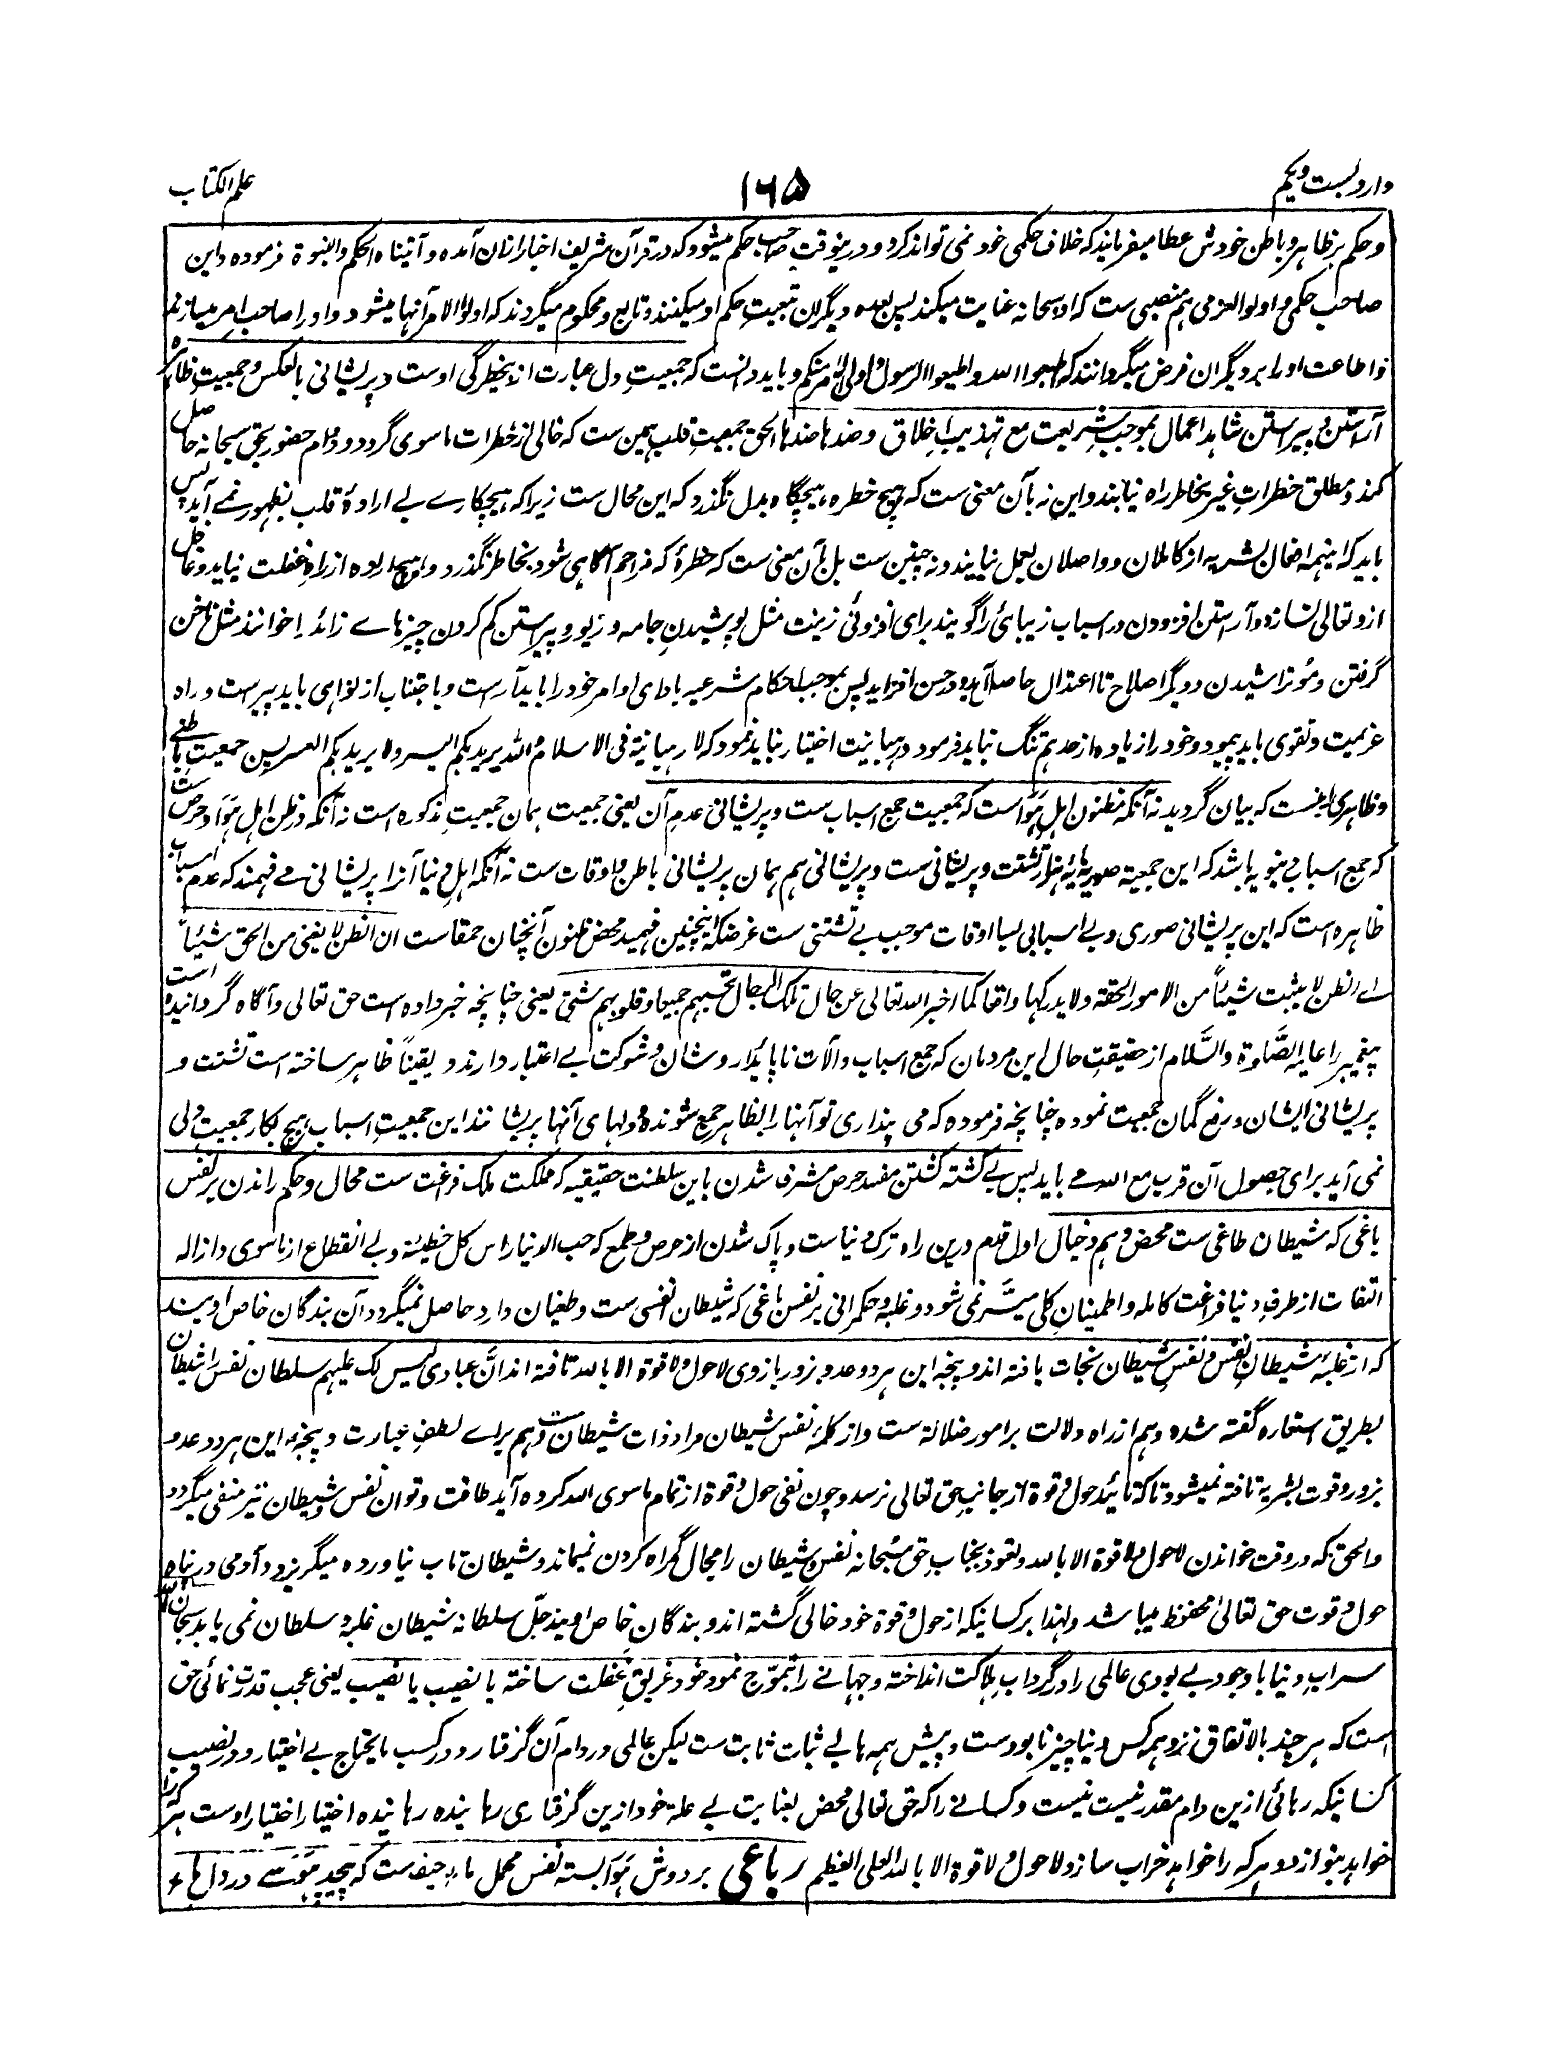 وارد بست ویکم
۱۶۵
علم الکتاب
وحکم بر ظاہر وباطن خودش عطا میفرمایند کہ خلاف حکمی خود نمی تواند کرد و درینوقت صاحب حکم میشود کہ در قرآن شریف اخبار ازان آمدہ وآتیناہ الحکم والنبوۃ فرمودہ واین
صاحب حکمی واولوالعزمی ہم منصبی ست کہ او سبحانہ عنایت میکند پس بعدہ دیگران تبعیتِ حکم او میکنند و تابع ومحکوم میگردند کہ اولوالامر آنہا میشود واورا صاحب امر میسازند
واطاعت اورا بر دیگران فرض میگردانند کہ اطیعوا اللہ واطیعوا الرسول واولی الامر منکم وباید دانست کہ جمعیتِ دل عبارت از بیخطرگی اوست وپریشانی بالعکس وجمعیتِ ظاہر
آراستن وپیراستن شاہد اعمال بموجب شریعت مع تہذیب اخلاق وضدہا ضدہا الحق جمعیتِ قلب ہمین ست کہ خالی از خطرات ماسوی گردد ودوام حضور بحق سبحانہ حاصل
کند ومطلق خطراتِ غیر بخاطر راہ نیابند واین نہ بآن معنی ست کہ ہیچ خطرہ ہیچگاہ بدل نگذرد کہ این محال ست زیراکہ ہیچکارے بے ارادۂ قلب بظہور نمے آید پس
باید کہ اینہمہ افعال بشریہ از کاملان وواصلان بعمل نیایند ونہ چنین ست بل بآن معنی ست کہ خطرۂ کہ مزاحم آگاہی شود بخاطر نگذرد و ازراہِ غفلت نیاید وغافل
ازو تعالی نسازد وآراستن افزودن در اسباب زیبائی را گویند برای افزونی زینت مثل پوشیدنِ جامہ و زیور وپیراستن کم کردن چیزہاے زائد را خوانند مثل ناخن
گرفتن ومُو تراشیدن ودیگر اصلاح تا اعتدال حاصل آید وحسن افزاید پس بموجب احکام شرعیہ بادای اوامر خود را باید آراست وباجتناب از نواہی باید پیراست وراہ
عزیمت وتقوی باید پیمود وخود را زیادہ از حد ہم تنگ نباید فرمود ورہبانیت اختیار نباید نمود کہ لا رہبانیۃ فی الاسلام واللہ یرید بکم الیسر ولا یرید بکم العسر پس جمعیتِ باطنے
وظاہری اینست کہ بیان گردید نہ آنکہ مظنون اہلِ ہَوا است کہ جمعیت جمع اسباب ست وپریشانی عدم آن یعنی جمعیت ہمان جمعیتِ مذکورہ است نہ آنکہ در ظن اہل ہَوا وحرص ست
کہ جمع اسباب دنیویہ باشد کہ این جمعیۃ صوریہ مایۂ ہزار تشتت وپریشانی ست وپریشانی ہم ہمان پریشانی باطن واوقات ست نہ آنکہ اہل دنیا آنرا پریشانی مے فہمند کہ عدم اسباب
ظاہرہ است کہ این پریشانی صوری وبے اسبابی بسا اوقات موجب بے تشتتی ست غرضکہ اینچنین فہمید محض ظنون آنچنان حمقاست ان الظن لا یغنی من الحق شیئاً
اے الظن لا یثبت شیئاً من الامور الحقۃ ولا یدرکہا واقعا کما اخبر اللہ تعالی عن حال تلک الرجال تحسبہم جمیعا وقلوبہم شتی یعنی چنانچہ خبر دادہ است حق تعالی وآگاہ گردانیدہ است
پیغمبر را علیہ الصَّلوٰۃ والسَّلام از حقیقتِ حال این مردمان کہ جمع اسباب وآلات ناپائدار وشان وشوکت بے اعتبار دارند و یقیناً ظاہر ساختہ است تشتت و
پریشانی ایشان ورفع گمان جمعیت نمودہ چنانچہ فرمودہ کہ می پنداری تو آنہا را بظاہر جمع شوندہ ودلہای آنہا پریشانند این جمعیتِ اسباب ہیچ بکار جمعیتِ دلی
نمی آید برای حصول آن قرب مع اللہ مے باید پس بے کشتہ گشتن مفسد حرص مشرف شدن باین سلطنت حقیقیہ کہ مملکت ملک فراغت ست محال وحکم راندن بر نفس
باغی کہ شیطان طاغی ست محض وہم وخیال اول قدم درین راہ ترک دنیاست وپاک شدن از حرص وطمع کہ حب الدنیا راس کل خطیئۃ وبے انقطاع از ماسوی وازالہ
التفات از طرفِ دنیا فراغت کاملہ واطمینانِ کلی میسَّر نمی شود وغلبہ وحکمرانی بر نفس باغی کہ شیطان انفسی ست وطغیان دارد حاصل نمیگردد آن بندگان خاص اویند
کہ از غلبۂ شیطانِ نفس ونفسِ شیطان نجات یافتہ اند وپنجہ این ہردو عدو بزور بازوی لاحول ولا قوۃ الا باللہ تافتہ اند انَّ عبادی لیس لک علیہم سلطان نفس را شیطان
بطریق استعارہ گفتہ شدہ وہم ازراہ دلالت بر امور ضلالۃ ست واز کلمۂ نفس شیطان مراد ذات شیطان ست وہم براے لطفِ عبارت وپنجۂ این ہردو عدو
بزور وقوت بشریہ تافتہ نمیشود تاکہ تائید حول وقوۃ از جانبِ حق تعالی نرسد وچون نفی حول وقوۃ از تمام ماسوی اللہ کردہ آید طاقت وتوان نفس وشیطان نیز منفی میگردد
والحق کہ در وقت خواندن لاحول ولا قوۃ الا باللہ وتعوذ بجناب حق سُبحانہ نفس وشیطان را مجال گمراہ کردن نمیماند وشیطان تاب نیاوردہ میگریزد وآدمی در پناہ
حول وقوت حق تعالیٰ محفوظ میباشد ولہٰذا بر کسانیکہ از حول وقوۃ خود خالی گشتہ اند وبندگان خاص اویند جلّ سلطانہ شیطان غلبہ و سلطان نمی یابد سبحان اللہ
سراب دنیا باوجود بے بودی عالمی را در گرداب ہلاکت انداختہ وجہانے را بتموّج نمود خود غریقِ غفلت ساختہ یا نصیب یا نصیب یعنی عجب قدرت نمائی حق
است کہ ہرچند بالاتفاق نزد ہمہ کس دنیا چیز نابودست وپیش ہمہ ہا بے ثبات ثابت ست لیکن عالمی در دام آن گرفتار ودر کسب مایحتاج بے اختیار ودر نصیب
کسانیکہ رہائی ازین دام مقدر نیست نیست وکسانے را کہ حق تعالی محض بعنایت بے علۃ خود ازین گرفتاری رہانیدہ رہانیدہ اختیار اختیار اوست ہرکہ را
خواہد بنوازد وہر کہ را خواہد خراب سازد ولاحول ولا قوۃ الا باللہ العلی العظیم رباعی بر دوش ہَوا بستہ نفس محمل ما ٭ حیفست کہ پیچد ہَوَسے در دل ما ٭